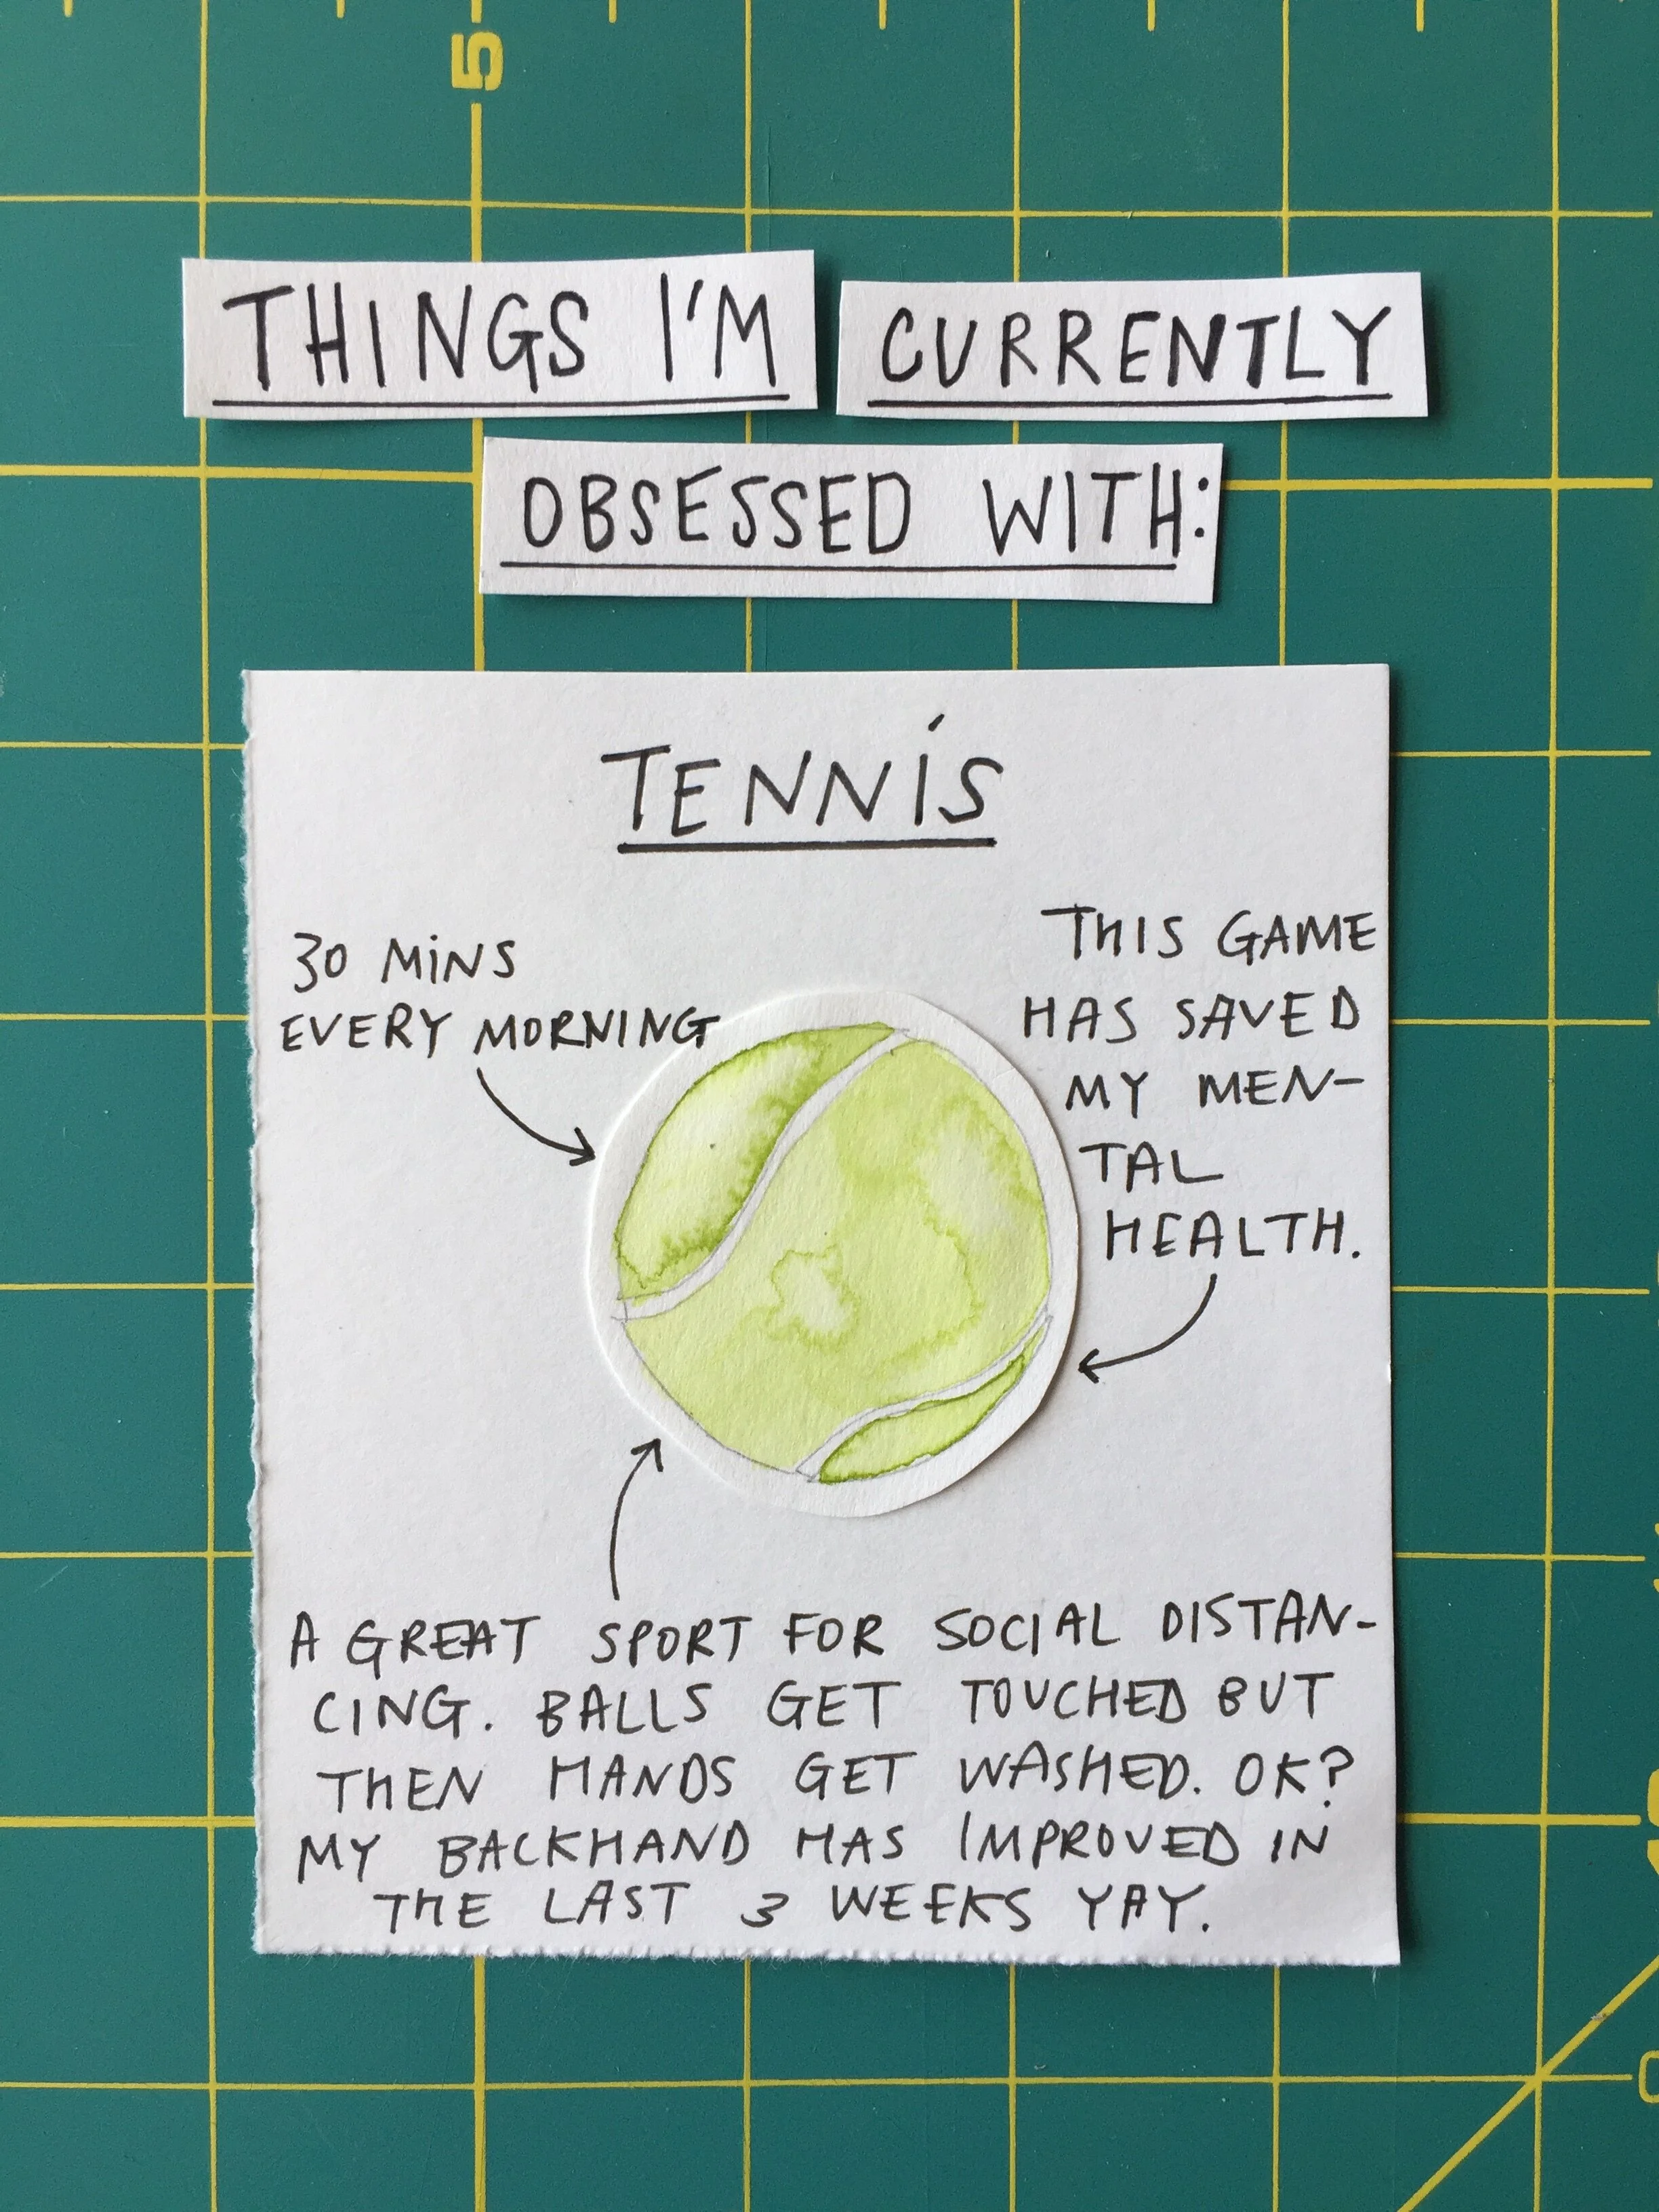 5
THINGS I'M CURRENTLY
OBSESSED WITH:
TENNIS
30 MINS
EVERY MORNING
THIS GAME
HAS SAVED
MY MEN-
TAL
HEALTH.
A GREAT SPORT FOR SOCIAL DISTAN-
CING. BALLS GET TOUCHED BUT
THEN HANDS GET WASHED. OK?
MY BACKHAND HAS IMPROVED IN
THE LAST 3 WEEKS YAY.